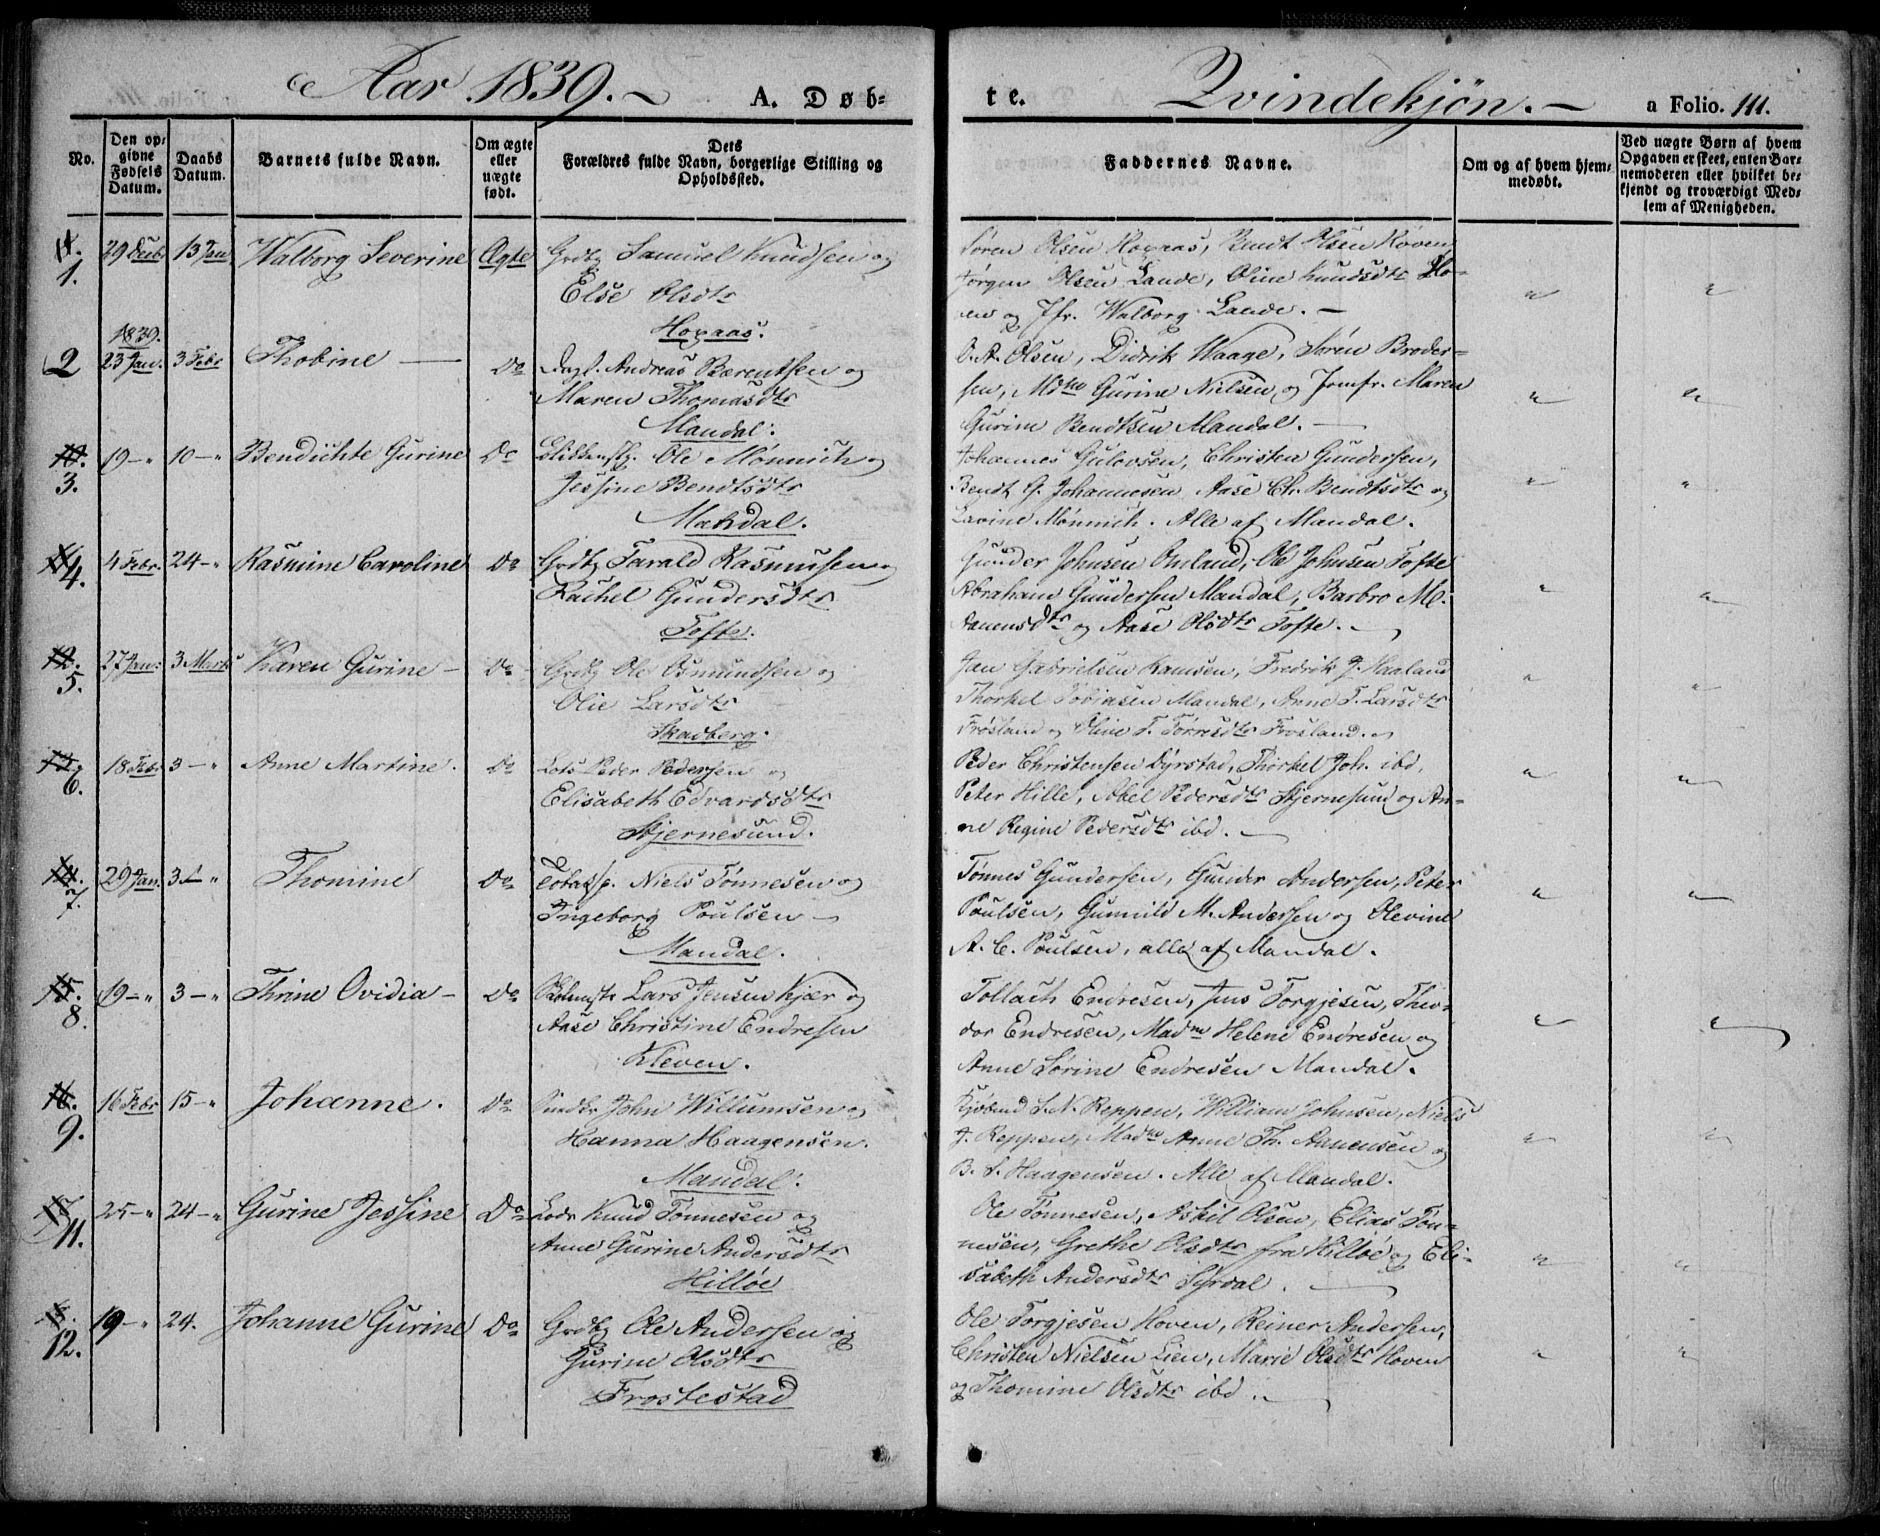 Aar 1839. A. Døb-
te. Qvindekjön. a Folio. 111.
No.
Den op-
givne
Fødsels
Datum.
Daabs
Datum.
Barnets fulde Navn.
Om ægte
eller
uægte
født.
Dets
Forældres fulde Navn, borgerlige Stilling og
Opholdssted.
Faddernes Navne.
Om og af hvem hjem-
medøbt.
Ved uægte Børn af hvem
Opgaven er skeet, enten Bar-
nemoderen eller hvilket be-
kjendt og troværdigt Med-
lem af Menigheden.
1. 29 Decb 13 Jan Walborg Severine Ægte Grdb Samuel Knudsen og
Else Olsdtr
Hogaas.
Søren Olsen Hogaas, Bendt Olsen Hoven,
Jørgen Olsen Lande, Oline Knudsdtr Ho-
en og Jfr. Walborg Lande.
1839.
2 23 Jan. 3 Febr Thobine Do Dagl. Andreas Bærentsen og
Maren Thomasdtr
Mandal.
O. A. Olsen, Didrik Waage, Søren Broder-
sen, Mdme Gurine Nielsen, og Jomfr. Maren
Gurine Bendtsen Mandal.
10. 3. 19 - " 10 - " Bendichte Gurine Do Ole Mønnich og
Jessine Bendtsdtr
Mandal.
Johannes Gulovsen, Christen Gundersen,
Bendt G. Johannesen, Aase Ch. Bendtsdtr og
Lavine Mønnich. Alle af Mandal.
11 4. 4 Febr. 24 - " Rasmine Caroline Do Grdb Tarald Rasmusen og
Rachel Gundersdtr
Tofte.
Gunder Johnsen Omland, Ole Johnsen Tofte
Abraham Gundersen Mandal, Barbro M.
Aanensdtr og Aase Olsdtr Tofte.
12. 5. 27 Jan: 3 Marts Karen Gurine Do Grdb Ole Osmundsen og
Olie Larsdtr
Skadberg.
Jan Gabrielsen Ramsen, Fredrik J. Haaland
Thorkel Tobiasen Mandal, Anne T. Larsdtr
Frøsland og Oline T. Torresdtr Frosland.
13. 6. 18 Febr 3 - " Anne Martine. Do Lots Peder Pedersen og
Elisabeth Edvardsdtr
Skjernesund.
Peder Christensen Dyrstad, Thorkel Joh. ibd.
Peter Hille, Abel Pedersdtr Skjernesund og An-
ne Regine Pedersdtr ibd.
14. 7. 29 Jan. 3 " Thomine Do Tobaksp. Niels Tønnesen og
Ingeborg Poulsen
Mandal.
Tønnes Gundersen, Gunder Andersen, Peter
Poulsen, Gunnild M. Andersen og Olevine
A. C. Poulsen, alle af Mandal.
15. 8. 19 - " 3 - " Thrine Ovidia Do Lars Jensen Kjær og
Aase Christine Endresen
Kleven.
Tollach Endresen, Jens Torgjesen, Theo-
dor Endresen, Madme Helene Endresen og
Anne Sørine Endresen Mandal.
16. 9. 16 Febr 15 - " Johanne. Do Snedkr John Willumsen og
Hanna Haagensen.
Mandal.
Kjøbmd S. N. Reppen, William Johnsen, Niels
J. Reppen, Madme Anne Th. Aanensen og
B. S. Haagensen. Alle af Mandal.
17 11. 25 - " 24 - " Gurine Jessine Do Lods Knud Tønnesen og
Anne Gurine Andersdtr
Hilløe
Ole Tønnesen, Askil Olsen, Elias Tøn-
nesen, Grethe Olsdtr fra Hilløe og Eli-
sabeth Andersdtr Syrdal.
12. 19 - " 24. Johanne Gurine Do Grdb Ole Andersen og
Gurine Olsdtr
Frostestad
Ole Torgjesen Hoven, Reiner Andersen,
Christen Nielsen Lien, Marie Olsdtr Hoven
og Thomine Olsdtr ibd.